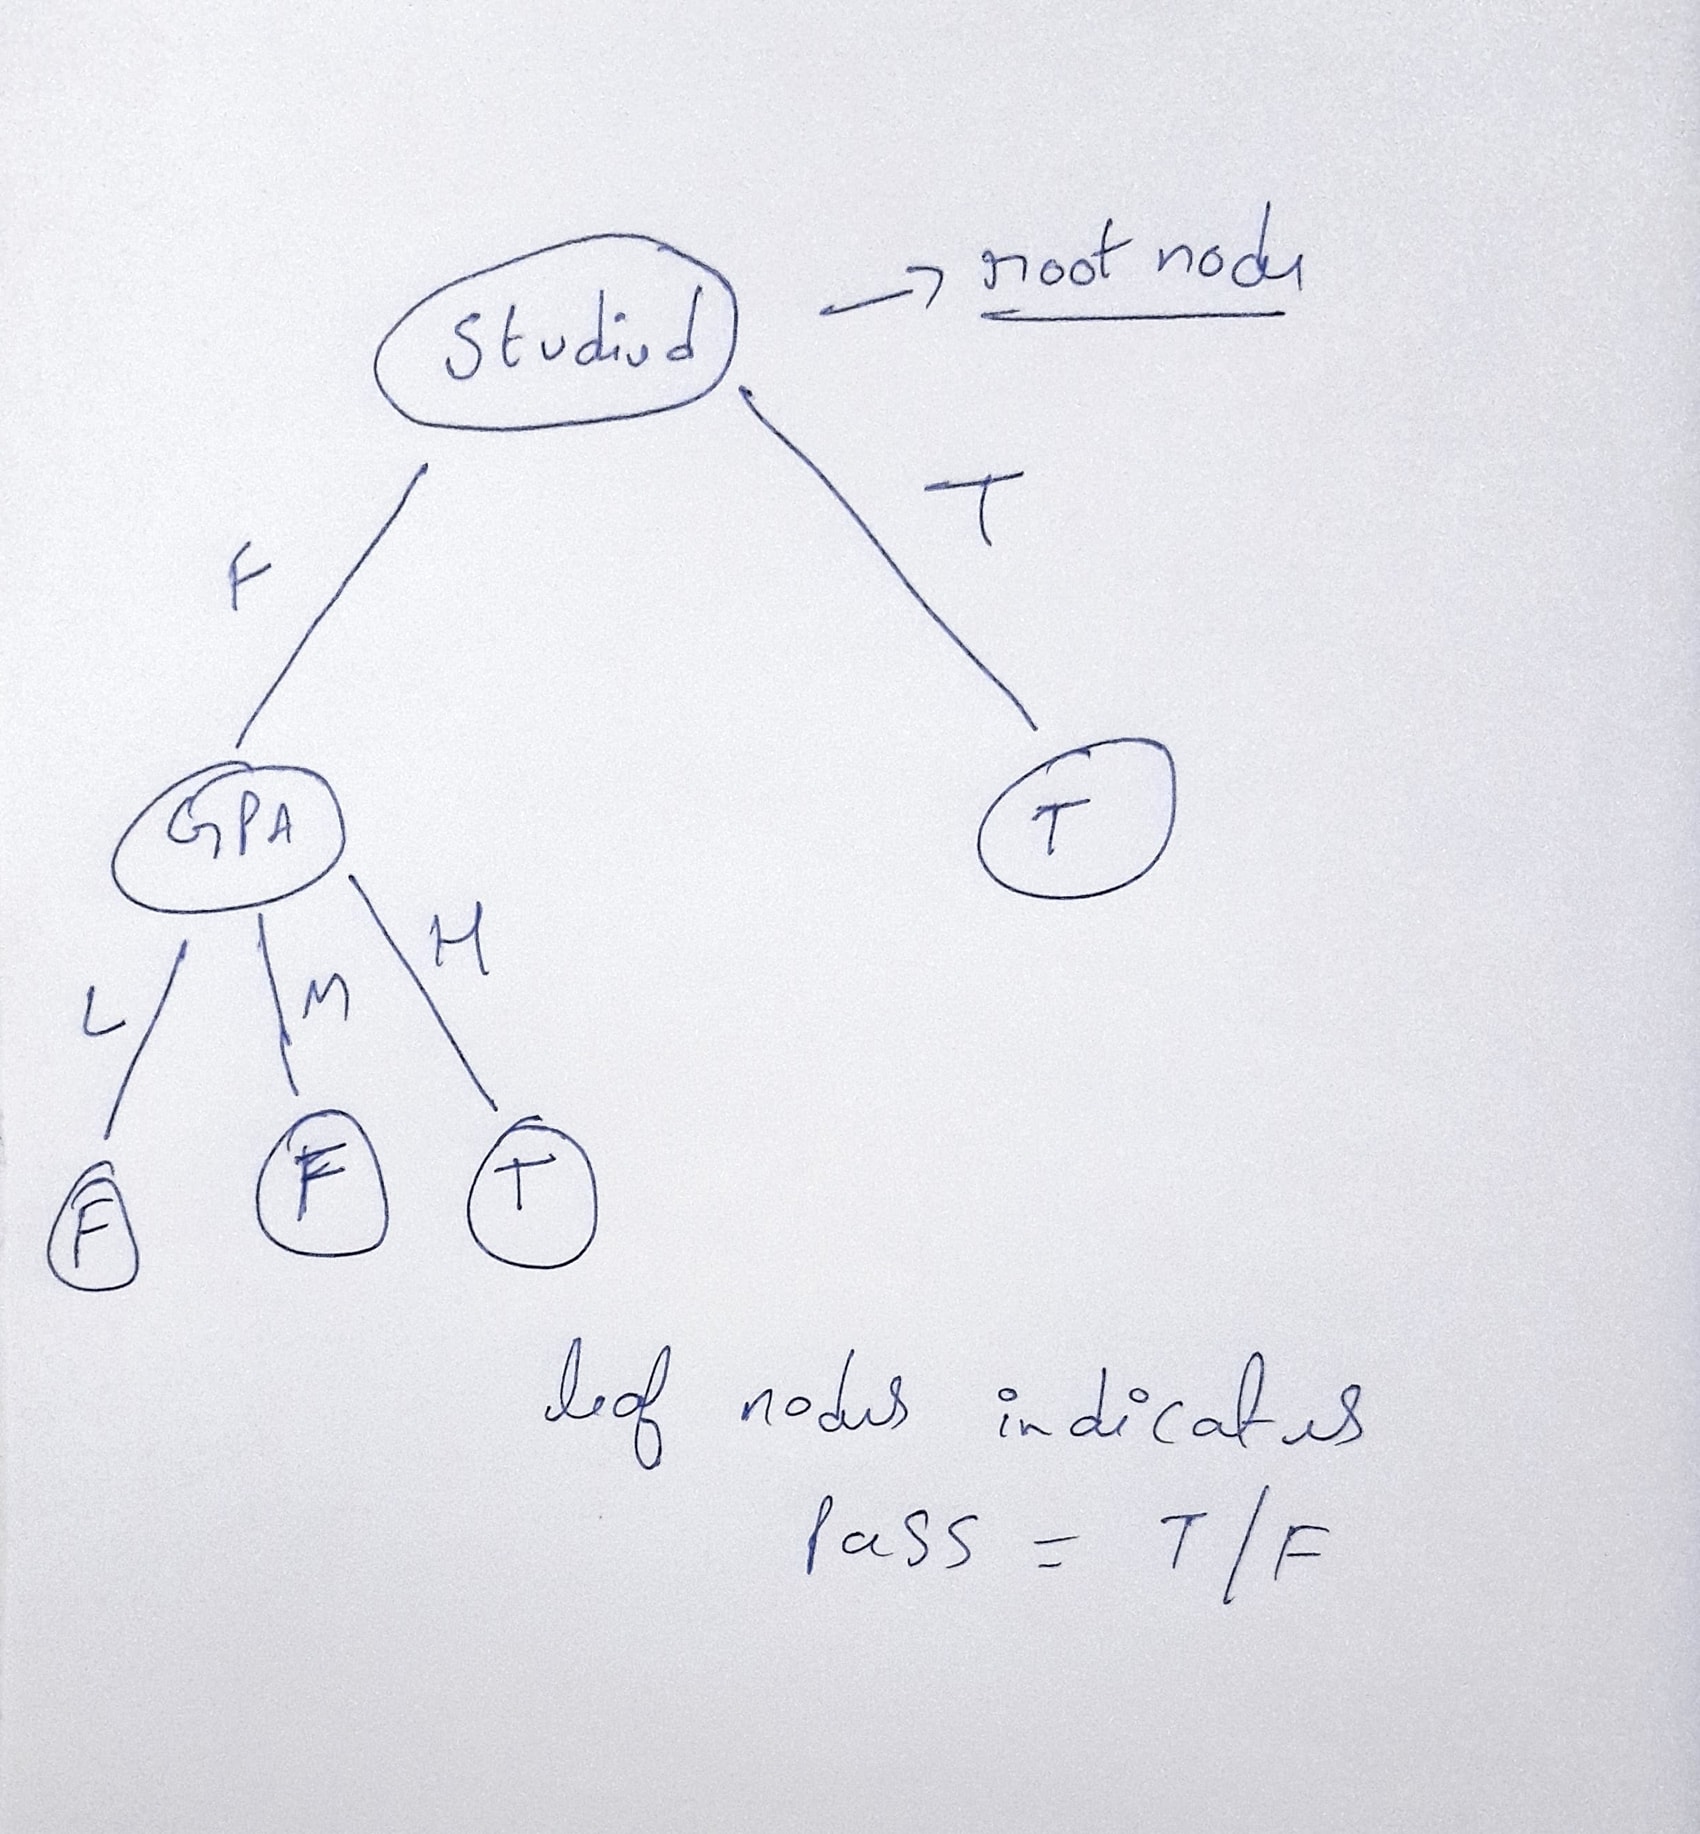 Studied → root node
F
T
GPA
T
L
M
H
F
F
T
leaf nodes indicates
Pass = T/F